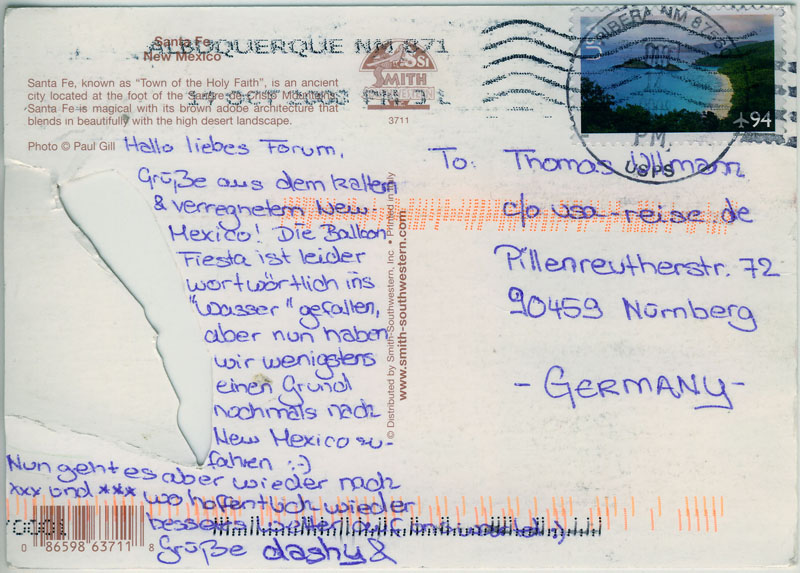 Santa Fe
New Mexico
ALBUQUERQUE NM 871
Santa Fe, known as "Town of the Holy Faith", is an ancient
city, located at the foot of the Sangre de Cristo Mountains.
Santa Fe is magical with its brown adobe architecture that
blends in beautifully with the high desert landscape.
Photo © Paul Gill
SMITH
3711
RIBERA NM
PM
USPS
94
Hallo liebes Forum,
Grüße aus dem kalten
& verregnetem New
Mexico! Die Balloon
Fiesta ist leider
wortwörtlich ins
"Wasser" gefallen,
aber nun haben
wir wenigstens
einen Grund
nochmals nach
New Mexico zu
fahren :-)
Nun geht es aber wieder nach
xxx und *** wo hoffentlich wieder
besseres
Grüße dashy &
© Distributed by Smith-Southwestern, Inc • Printed in Italy
www.smith-southwestern.com
To: Thomas Wallmann
c/o usa-reise.de
Pillenreutherstr. 72
90459 Nürnberg
- GERMANY -
Y0001
0 86598 63711 8